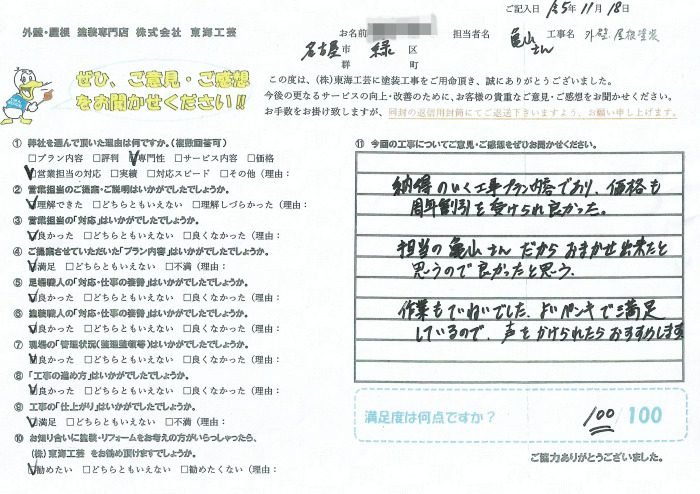 ご記入日 R5年11月18日
外壁・屋根 塗装専門店 株式会社 東海工芸
お名前 担当者名 亀山さん 工事名 外壁、屋根塗装
名古屋市 緑区
郡 町
ぜひ、ご意見・ご感想
をお聞かせください!!
この度は、(株)東海工芸に塗装工事をご用命頂き、誠にありがとうございました。
今後の更なるサービスの向上・改善のために、お客様の貴重なご意見・ご感想をお聞かせください。
お手数をお掛け致しますが、同封の返信用封筒にてご返送下さいますよう、お願い申し上げます。
① 弊社を選んで頂いた理由は何ですか。(複数回答可)
□プラン内容 □評判 ☑専門性 □サービス内容 □価格
☑営業担当の対応 □実績 □対応スピード □その他(理由:
② 営業担当のご提案・ご説明はいかがでしたでしょうか。
☑理解できた □どちらともいえない □理解しづらかった(理由:
③ 営業担当の「対応」はいかがでしたでしょうか。
☑良かった □どちらともいえない □良くなかった(理由:
④ ご提案させていただいた「プラン内容」はいかがでしたでしょうか。
☑満足 □どちらともいえない □不満(理由:
⑤ 足場職人の「対応・仕事の姿勢」はいかがでしたでしょうか。
☑良かった □どちらともいえない □良くなかった(理由:
⑥ 塗装職人の「対応・仕事の姿勢」はいかがでしたでしょうか。
☑良かった □どちらともいえない □良くなかった(理由:
⑦ 現場の「管理状況(整理整頓等)はいかがでしたでしょうか。
☑良かった □どちらともいえない □良くなかった(理由:
⑧ 「工事の進め方」はいかがでしたでしょうか。
☑良かった □どちらともいえない □良くなかった(理由:
⑨ 工事の「仕上がり」はいかがでしたでしょうか。
☑満足 □どちらともいえない □不満(理由:
⑩ お知り合いに塗装・リフォームをお考えの方がいらっしゃったら、
(株)東海工芸 をお勧め頂けますでしょうか。
☑勧めたい □どちらともいえない □勧めたくない(理由:
⑪ 今回の工事についてご意見・ご感想をぜひお聞かせください。
納得のいく工事プラン内容であり、価格も
周年割引を受けられ良かった。
担当の亀山さんだからおまかせ出来たと
思うので良かったと思う、
作業もていねいでした、よいペンキで満足
しているので、声をかけられたらおすすめします
満足度は何点ですか? 100/100
ご協力ありがとうございました。